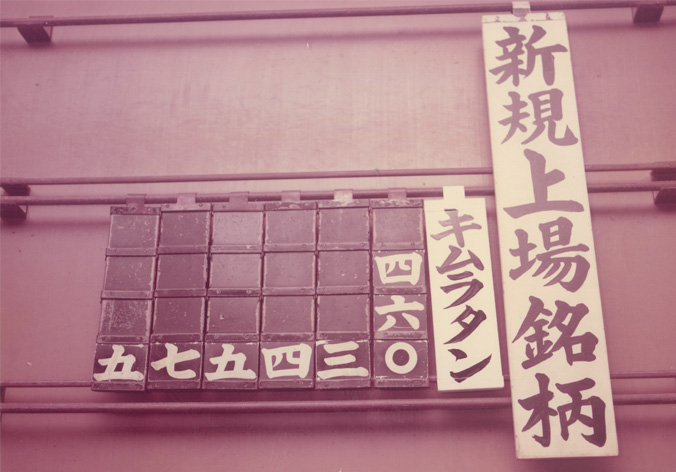 新規上場銘柄
キムラタン
四六〇
三
四
五
七
五